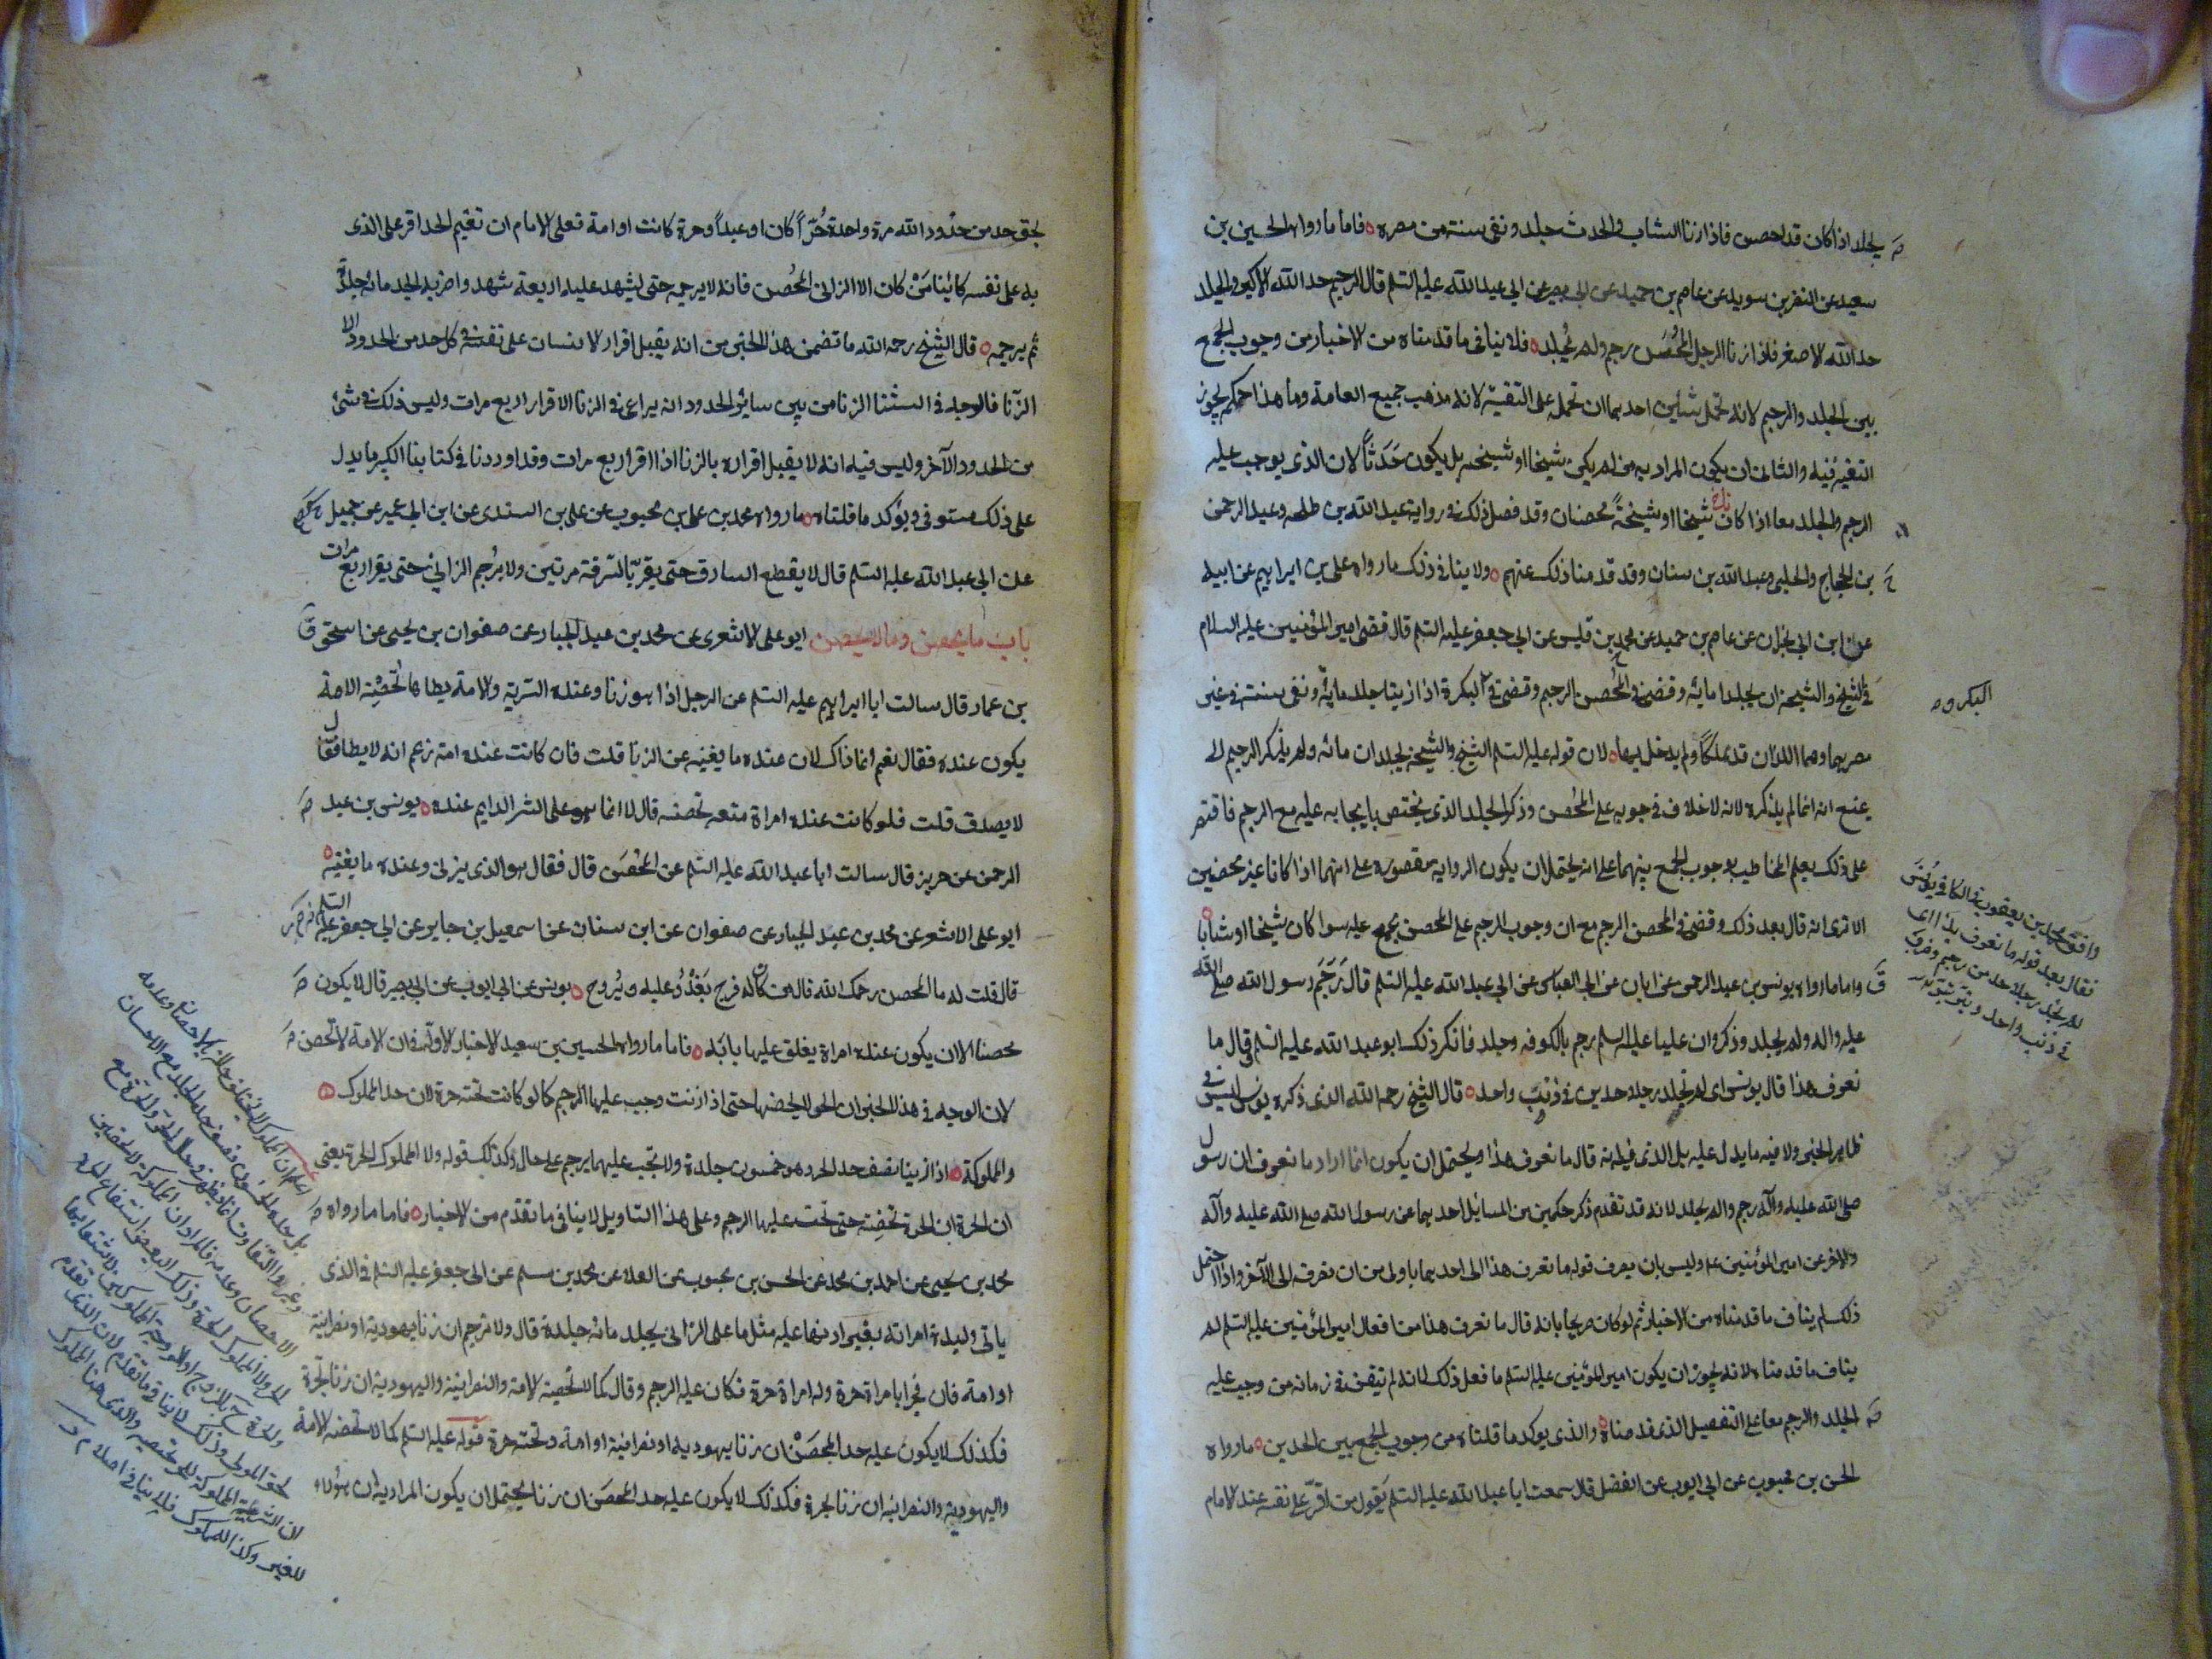 يجلد اذا كان قد احصن فاذا زنا الشاب والحدث جلد ونفى سنة من مصره فاما ما رواه الحسين بن
سعيد عن النضر بن سويد عن عاصم بن حميد عن ابي بصير عن ابي عبد الله عليه السلم قال الرجم حد الله الاكبر والجلد
حد الله الاصغر فاذا زنا الرجل المحصن رجم ولم يُجلد فلا ينافى ما قدمناه من الاخبار من وجوب الجمع
بين الجلد والرجم لانه يحتمل شيئين احدهما ان نحمله على التقية لانه مذهب جميع العامة وما هذا حكمه يجوز
التقية فيه والثانى ان يكون المراد به من لم يكن شيخا او شيخة بل يكون حَدَثاً لان الذى يوجب عليه
الرجم والجلد معا اذا كان شيخا او شيخةً محصنان وقد فصل ذلك فى رواية عبد الله بن طلحه وعبد الرحمن
بن الحجاج والحلبى وعبد الله بن سنان وقد قدمنا ذلك عنهم ولا ينافى ذلك ما رواه على بن ابراهيم عن ابيه
عن ابن ابي نجران عن عاصم بن حميد عن محمد بن قيس عن ابي جعفر عليه السلم قال قضى امير المؤمنين عليه السلام
فى الشيخ والشيخة ان يجلدا مايه وقضى فى المحصن الرجم وقضى فى البكرة اذا زنيا جلد مايه ونفى سنة فى غير
البكر و
مصرهما وهما اللذان قد ملكا ولم يدخل بها لان قوله عليه السلم الشيخ والشيخة يجلدان مائه ولم يذكر الرجم لا
يمتنع انه انما لم يذكره لانه لا خلاف فى وجوبه على المحصن وذكر الجلد الذى يختص بايجابه عليه مع الرجم فاقتصر
على ذلك بعلم المخاطب بوجوب الجمع بينهما على انه يحتمل ان يكون الرواية مقصورة على انهما اذا كانا غير محصنين
الا ترى انه قال بعد ذلك وقضى فى المحصن الرجم مع ان وجوب الرجم على المحصن مجمع عليه سوا كان شيخا او شابا
واما ما رواه يونس بن عبد الرحمن عن ابان عن ابي العباس عن ابي عبد الله عليه السلم قال رَجَم رسول الله صلى الله
عليه واله ولم يجلد وذكروا ان عليا عليه السلم رجم بالكوفه وجلد فانكر ذلك ابو عبد الله عليه السلم قال ما
نعرف هذا قال يونس اى لم نجلد رجلا حدين فى ذنب واحد قال الشيخ رحمه الله الذى ذكره يونس ليس فى
ظاهر الخبر ولا فيه ما يدل عليه بل الذى فيه انه قال ما نعرف هذا ويحتمل ان يكون انما اراد ما نعرف ان رسول
صلى الله عليه وآله رجم ولم يجلد لانه قد تقدم ذكر حكمين من المسائل احدهما عن رسول الله صلى الله عليه وآله
والاخر عن امير المؤمنين عم وليس بان يصرف قوله ما نعرف هذا الى احدهما باولى من ان نصرفه الى الآخر واذا احتمل
ذلك لم يناف ما قدمناه من الاخبار ثم لو كان صريحا بانه قال ما نعرف هذا من افعال امير المؤمنين عليه السلم لم
يناف ما قدمناه لانه يجوز ان يكون امير المؤمنين عليه السلم ما فعل ذلك لانه لم تيقن فى زمانه من وجب عليه
الجلد والرجم معا على التفصيل الذى قدمناه والذى يوكد ما قلناه من وجوب الجمع بين الحدين ما رواه
الحسن بن محبوب عن ابي ايوب عن الفضل قال سمعت ابا عبد الله عليه السلم يقول من اقرّ على نفسه عند الامام
وافق محمد بن يعقوب فى الكافى يونس
فقال بعد قوله ما نعرف هذا اى
لم نجد رجلا حد من رجم وضرب
فى ذنب واحد
بحق حد من حدود الله مرة واحدة حُرّاً كان او عبداً وحرة كانت او امة فعلى الامام ان تقيم الحد اقر على الذى
به على نفسه كائنا مَنْ كان الا الزانى المحُصن فانه لا يرجمه حتى يشهد عليه اربعة شهد واضربه الحد مائه جلدةً
ثم يرجمه قال الشيخ رحمه الله ما تضمن هذا الخبر من انه يقبل اقرار الانسان على نفسه فى كل حد من الحدود الا
الزّنا فالوجه فى استثنا الزنا من بين سائر الحدود انه يراعى فى الزنا الاقرار اربع مرات وليس ذلك فى شئ
من الحدود الآخر وليس فيه انه لا يقبل اقراره بالزنا اذا اقر اربع مرات وقد اوردنا فى كتابنا الكبير ما يدل
على ذلك مستوفى ويؤكد ما قلناه ما رواه محمد بن على بن محبوب عن على بن السندى عن ابن ابي عمير عن جميل
عن ابي عبد الله عليه السلم قال لا يقطع السارق حتى يقر بّالسّرقة مرتين ولا يرُجم الزانى حتى يقر اربع مرات
باب ما يحصن وما لا يحصن ابو على الاشعرى عن محمد بن عبد الجبار عن صفوان بن يحيى عن اسحق
بن عمار قال سالت ابا ابراهيم عليه السلم عن الرجل اذا هو زنا وعنده السرية والامة يطاها تُحصْنِه الامة
يكون عنده فقال نعم انما ذاك لان عنده ما يغنيه عن الزنا قلت فان كانت عنده امة زعم انه لا يطاها فقال
لا يصدق قلت فلو كانت عنده امراة متعه تحصنه قال لا انما هو على الشئ الدايم عنده يونس بن عبد
الرحمن عن حريز قال سالت ابا عبد الله عليه السلم عن المحْصَن قال فقال هو الذى يزنى وعنده ما يغنيه
ابو على الاشعر عن محمد بن عبد الجبار عن صفوان عن ابن سنان عن اسمعيل بن جابر عن ابي جعفر عليه السلم
قال قلت له ما المحصن رحمك الله قال من كان له فرج يَغْدُدُ عليه و يَرُوح يونس عن ابي ايوب عن ابي بصير قال لا يكون
محصنا الا ان يكون عنده امراة يغلق عليها بابَه فاما ما رواه الحسين بن سعيد الاخبار الاوله فان الامة لا تحصن
لان الوجه فى هذا الخبر ان الحر لا يحصنها حتى اذا زنت وجب عليها الرجم كما لو كانت تحته حرة لان حد المملوك
والمملوكة اذا زنيا نصف حد الحر وهو خمسون جلدة ولا يجب عليهما رجم على حال وكذلك قوله ولا المملوك الحرة يعنى
ان الحرة ان الحرة تحصِنه حتى تحت عليها الرجم وعلى هذا التاويل لا ينافى ما تقدم من الاخبار فاما ما رواه
محمد بن يحيى عن احمد بن محمد عن الحسن بن محبوب عن العلا عن محمد بن مسلم عن ابى جعفر عليه السلم فى الذى
ياتى وليدة امراته بغير اذنها عليه مثل ما على الزانى يجلد مائه جلدة قال ولا يرجم ان زنا بيهودية او نصرانية
او امة فان فجر بامراة حرة وله امراة حرة فكان عليه الرجم وقال كما لا تحصنه الامة والنصرانية واليهودية ان زنا بحُرة
فكذلك لا يكون عليه حد المحصَنْ ان زنا بيهوديه او نصرانية او امة وتحته حرة قوله عليه السلم كما لا تحصنه الامة
واليهودية والنصرانيه ان زنا بحرة فكذلك لا يكون عليه حد المحصَن ان زنا يحتمل ان يكون المراد به ان هؤلاء